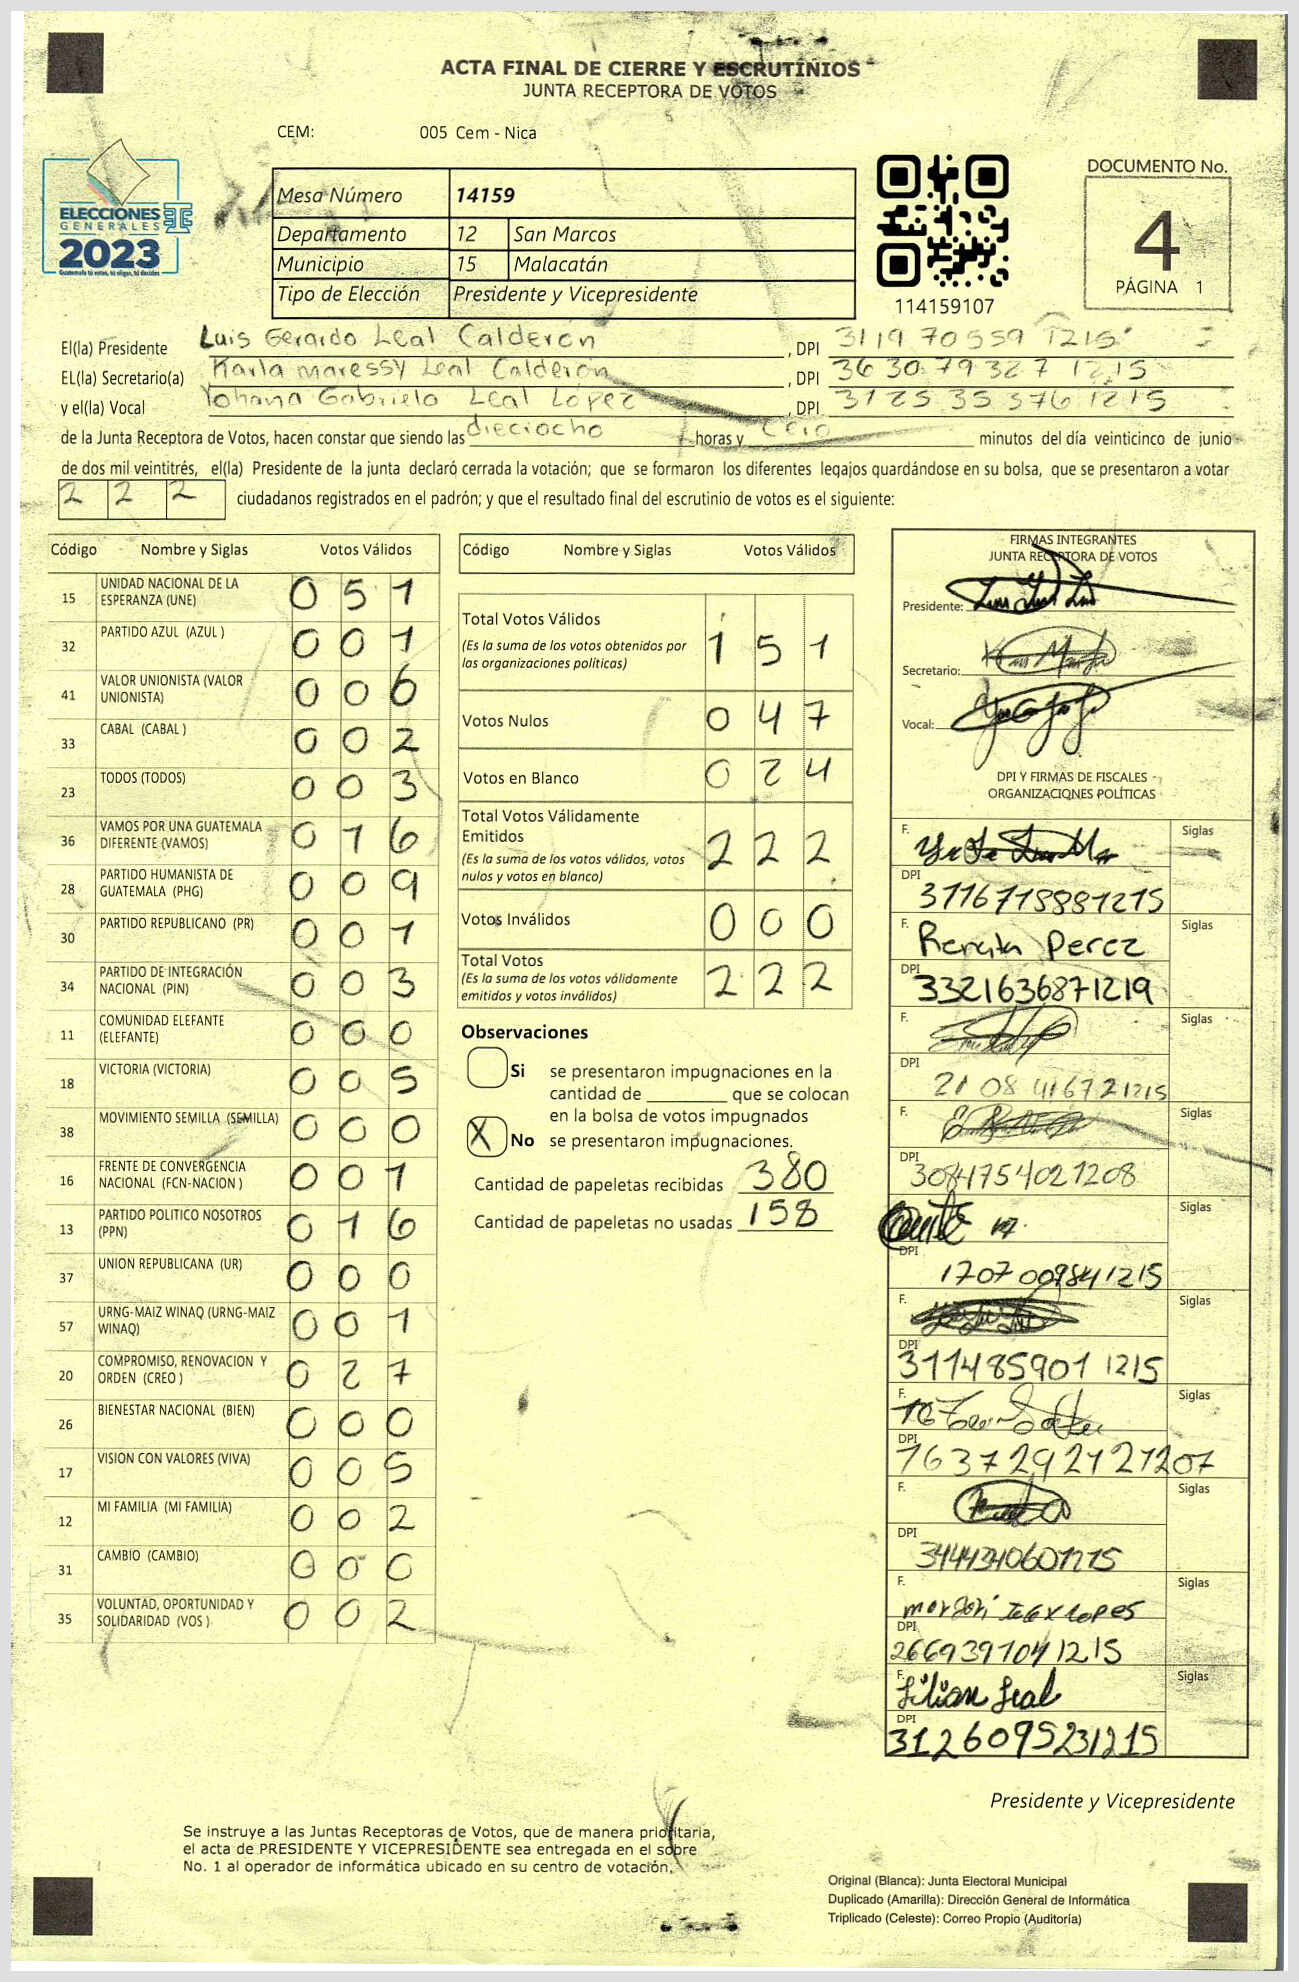 ACTA FINAL DE CIERRE Y ESCRUTINIOS
JUNTA RECEPTORA DE VOTOS
CEM: 005 Cem - Nica
ELECCIONES
GENERALES
2023
Guatemala tú votas, tú eliges, tú decides
Mesa Número 14159
Departamento 12 San Marcos
Municipio 15 Malacatán
Tipo de Elección Presidente y Vicepresidente
114159107
DOCUMENTO No.
4
PÁGINA 1
El(la) Presidente Luis Gerardo Leal Calderón , DPI 3119 70559 1215
EL(la) Secretario(a) Karla maressy Leal Calderón , DPI 3630 79327 1215
y el(la) Vocal Yohana Gabriela Leal López , DPI 3125 35376 1215
de la Junta Receptora de Votos, hacen constar que siendo las dieciocho horas y cero minutos del día veinticinco de junio
de dos mil veintitrés, el(la) Presidente de la junta declaró cerrada la votación; que se formaron los diferentes legajos quardándose en su bolsa, que se presentaron a votar
2 2 2 ciudadanos registrados en el padrón; y que el resultado final del escrutinio de votos es el siguiente:
Código Nombre y Siglas Votos Válidos
15 UNIDAD NACIONAL DE LA ESPERANZA (UNE) 0 5 1
32 PARTIDO AZUL (AZUL ) 0 0 1
41 VALOR UNIONISTA (VALOR UNIONISTA) 0 0 6
33 CABAL (CABAL ) 0 0 2
23 TODOS (TODOS) 0 0 3
36 VAMOS POR UNA GUATEMALA DIFERENTE (VAMOS) 0 1 6
28 PARTIDO HUMANISTA DE GUATEMALA (PHG) 0 0 9
30 PARTIDO REPUBLICANO (PR) 0 0 1
34 PARTIDO DE INTEGRACIÓN NACIONAL (PIN) 0 0 3
11 COMUNIDAD ELEFANTE (ELEFANTE) 0 0 0
18 VICTORIA (VICTORIA) 0 0 5
38 MOVIMIENTO SEMILLA (SEMILLA) 0 0 0
16 FRENTE DE CONVERGENCIA NACIONAL (FCN-NACION ) 0 0 1
13 PARTIDO POLITICO NOSOTROS (PPN) 0 1 6
37 UNION REPUBLICANA (UR) 0 0 0
57 URNG-MAIZ WINAQ (URNG-MAIZ WINAQ) 0 0 1
20 COMPROMISO, RENOVACION Y ORDEN (CREO ) 0 2 7
26 BIENESTAR NACIONAL (BIEN) 0 0 0
17 VISION CON VALORES (VIVA) 0 0 5
12 MI FAMILIA (MI FAMILIA) 0 0 2
31 CAMBIO (CAMBIO) 0 0 0
35 VOLUNTAD, OPORTUNIDAD Y SOLIDARIDAD (VOS ) 0 0 2
Código Nombre y Siglas Votos Válidos
Total Votos Válidos 1 5 1
(Es la suma de los votos obtenidos por
las organizaciones políticas)
Votos Nulos 0 4 7
Votos en Blanco 0 2 4
Total Votos Válidamente
Emitidos 2 2 2
(Es la suma de los votos válidos, votos
nulos y votos en blanco)
Votos Inválidos 0 0 0
Total Votos 2 2 2
(Es la suma de los votos válidamente
emitidos y votos inválidos)
Observaciones
Si se presentaron impugnaciones en la
cantidad de ________ que se colocan
en la bolsa de votos impugnados
X No se presentaron impugnaciones.
Cantidad de papeletas recibidas 380
Cantidad de papeletas no usadas 158
FIRMAS INTEGRANTES
JUNTA RECEPTORA DE VOTOS
Presidente:
Secretario:
Vocal:
DPI Y FIRMAS DE FISCALES
ORGANIZACIONES POLÍTICAS
F. Siglas
DPI 3116718881215
F. Rercita Perez Siglas
DPI 3321636871219
F. Siglas
DPI 21 08 41672 1215
F. Siglas
DPI 3084175402 1208
F. Siglas
DPI 1707 009841215
F. Siglas
DPI 311485901 1215
F. Siglas
DPI 1637292121207
F. Siglas
DPI 3444340601215
F. Siglas
DPI 2669397041215
F. Lilian Leal Siglas
DPI 3126095231215
Presidente y Vicepresidente
Se instruye a las Juntas Receptoras de Votos, que de manera prioritaria,
el acta de PRESIDENTE Y VICEPRESIDENTE sea entregada en el sobre
No. 1 al operador de informática ubicado en su centro de votación.
Original (Blanca): Junta Electoral Municipal
Duplicado (Amarilla): Dirección General de Informática
Triplicado (Celeste): Correo Propio (Auditoría)